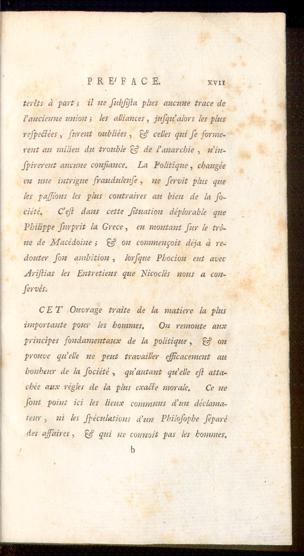 PRÉFACE. XVII
terêts à part; il ne subsista plus aucune trace de
l'ancienne union; les alliances, jusqu'alors les plus
respectées, furent oubliées, & celles qui se forme-
rent au milieu du trouble & de l'anarchie, n'ins-
pirerent aucune confiance. La Politique, changée
en une intrigue frauduleuse, ne servit plus que
les passions les plus contraires au bien de la so-
ciété. C'est dans cette situation déplorable que
Philippe surprit la Grece, en montant sur le trô-
ne de Macédoine; & on commençoit déja à re-
douter son ambition, lorsque Phocion eut avec
Aristias les Entretiens que Nicoclès nous a con-
servés.
CET Ouvrage traite de la matiere la plus
importante pour les hommes. On remonte aux
principes fondamentaux de la politique, & on
prouve qu'elle ne peut travailler efficacement au
bonheur de la société, qu'autant qu'elle est atta-
chée aux régles de la plus exacte morale. Ce ne
sont point ici les lieux communs d'un déclama-
teur, ni les spéculations d'un Philosophe séparé
des affaires, & qui ne connoît pas les hommes.
b